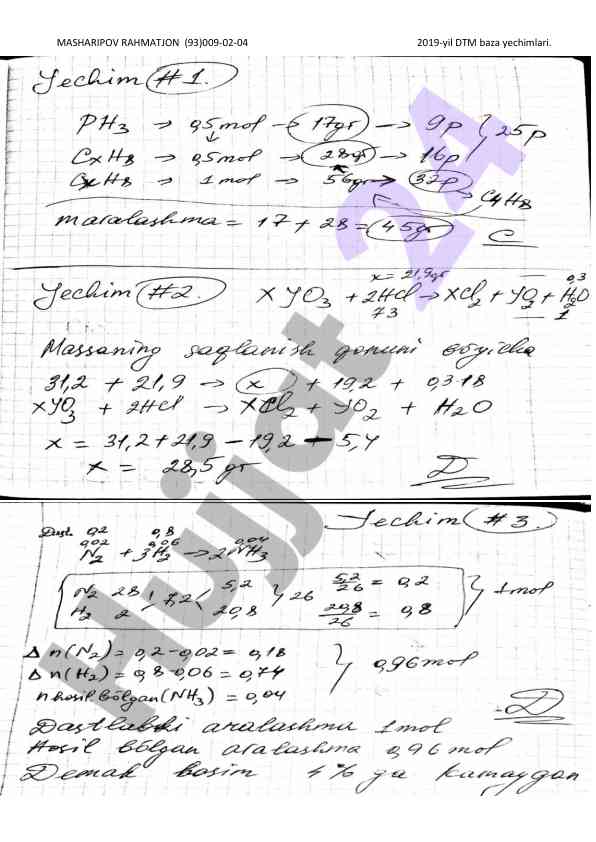 MASHARIPOV RAHMATJON (93)009-02-04 2019-yil DTM baza yechimlari.
Yechim #1.
PH3 → 0,5 mol → 17gr → 9p
25p
CxH8 → 0,5 mol → 28gr → 16p
CxH8 → 1 mol → 56gr → 32p
C4H8
m aralashma = 17 + 28 = 45gr C
Yechim #2. x = 21,9gr 0,3
XYO3 + 2HCl → XCl2 + YO2 + H2O
73 1
Massaning saqlanish qonuni bo'yicha
31,2 + 21,9 → x + 19,2 + 0,3·18
XYO3 + 2HCl → XCl2 + YO2 + H2O
x = 31,2 + 21,9 - 19,2 - 5,4
x = 28,5 gr D
Yechim #3.
Dast. 0,2 0,8
0,02 0,06 0,04
N2 + 3H2 → 2NH3
N2 28 7,2 5,2 26 5,2/26 = 0,2
H2 2 20,8 20,8/26 = 0,8
1 mol
Δ n(N2) = 0,2 - 0,02 = 0,18
Δ n(H2) = 0,8 - 0,06 = 0,74
0,96 mol
n hosil bo'lgan (NH3) = 0,04
D
Dastlabki aralashma 1 mol
Hosil bo'lgan aralashma 0,96 mol
Demak bosim 4% ga kamaygan
Hujjat 24